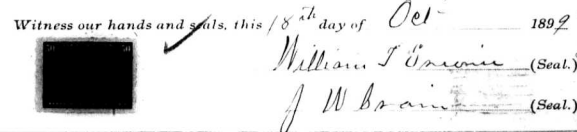 Witness our hands and seals, this 18th day of Oct 1899
William T (Seal.)
J W Crain (Seal.)